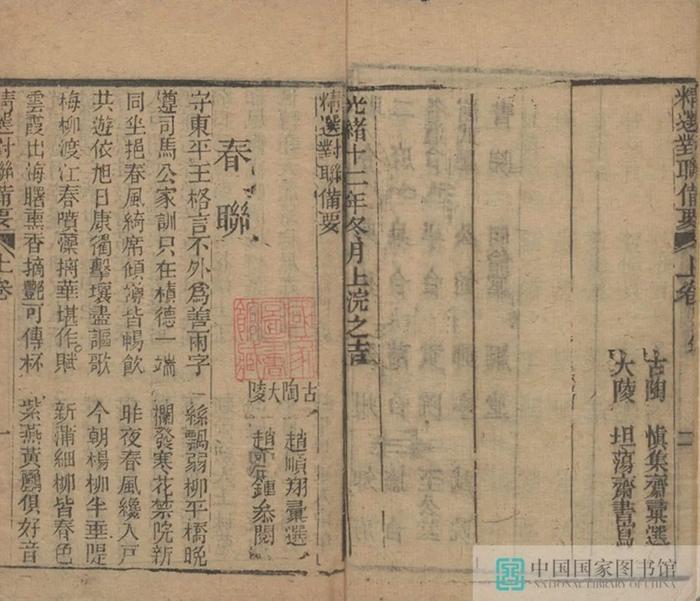 精選對聯備要
上卷
二
古陶 慎集齋彙選
大陵 坦蕩齋書寫
光緒十二年冬月上浣之吉
精選對聯備要
古陶 趙順翔彙選
大陵 趙 鍾叅閱
春聯
守東平王格言不外爲善兩字
絲飄弱柳平橋晚
遵司馬公家訓只在積德一端
欄發寒花禁院新
同坐挹春風綺席傾 皆暢飲
昨夜春風纔入戶
共遊依旭日康衢擊壤盡謳歌
今朝楊柳半垂隄
梅柳渡江春噴藻摛華堪作賦
新蒲細柳皆春色
雲霞出海曙熏香摘艷可傳杯
紫燕黃鸝俱好音
精選對聯備要
上卷
一
中国国家图书馆
NATIONAL LIBRARY OF CHINA